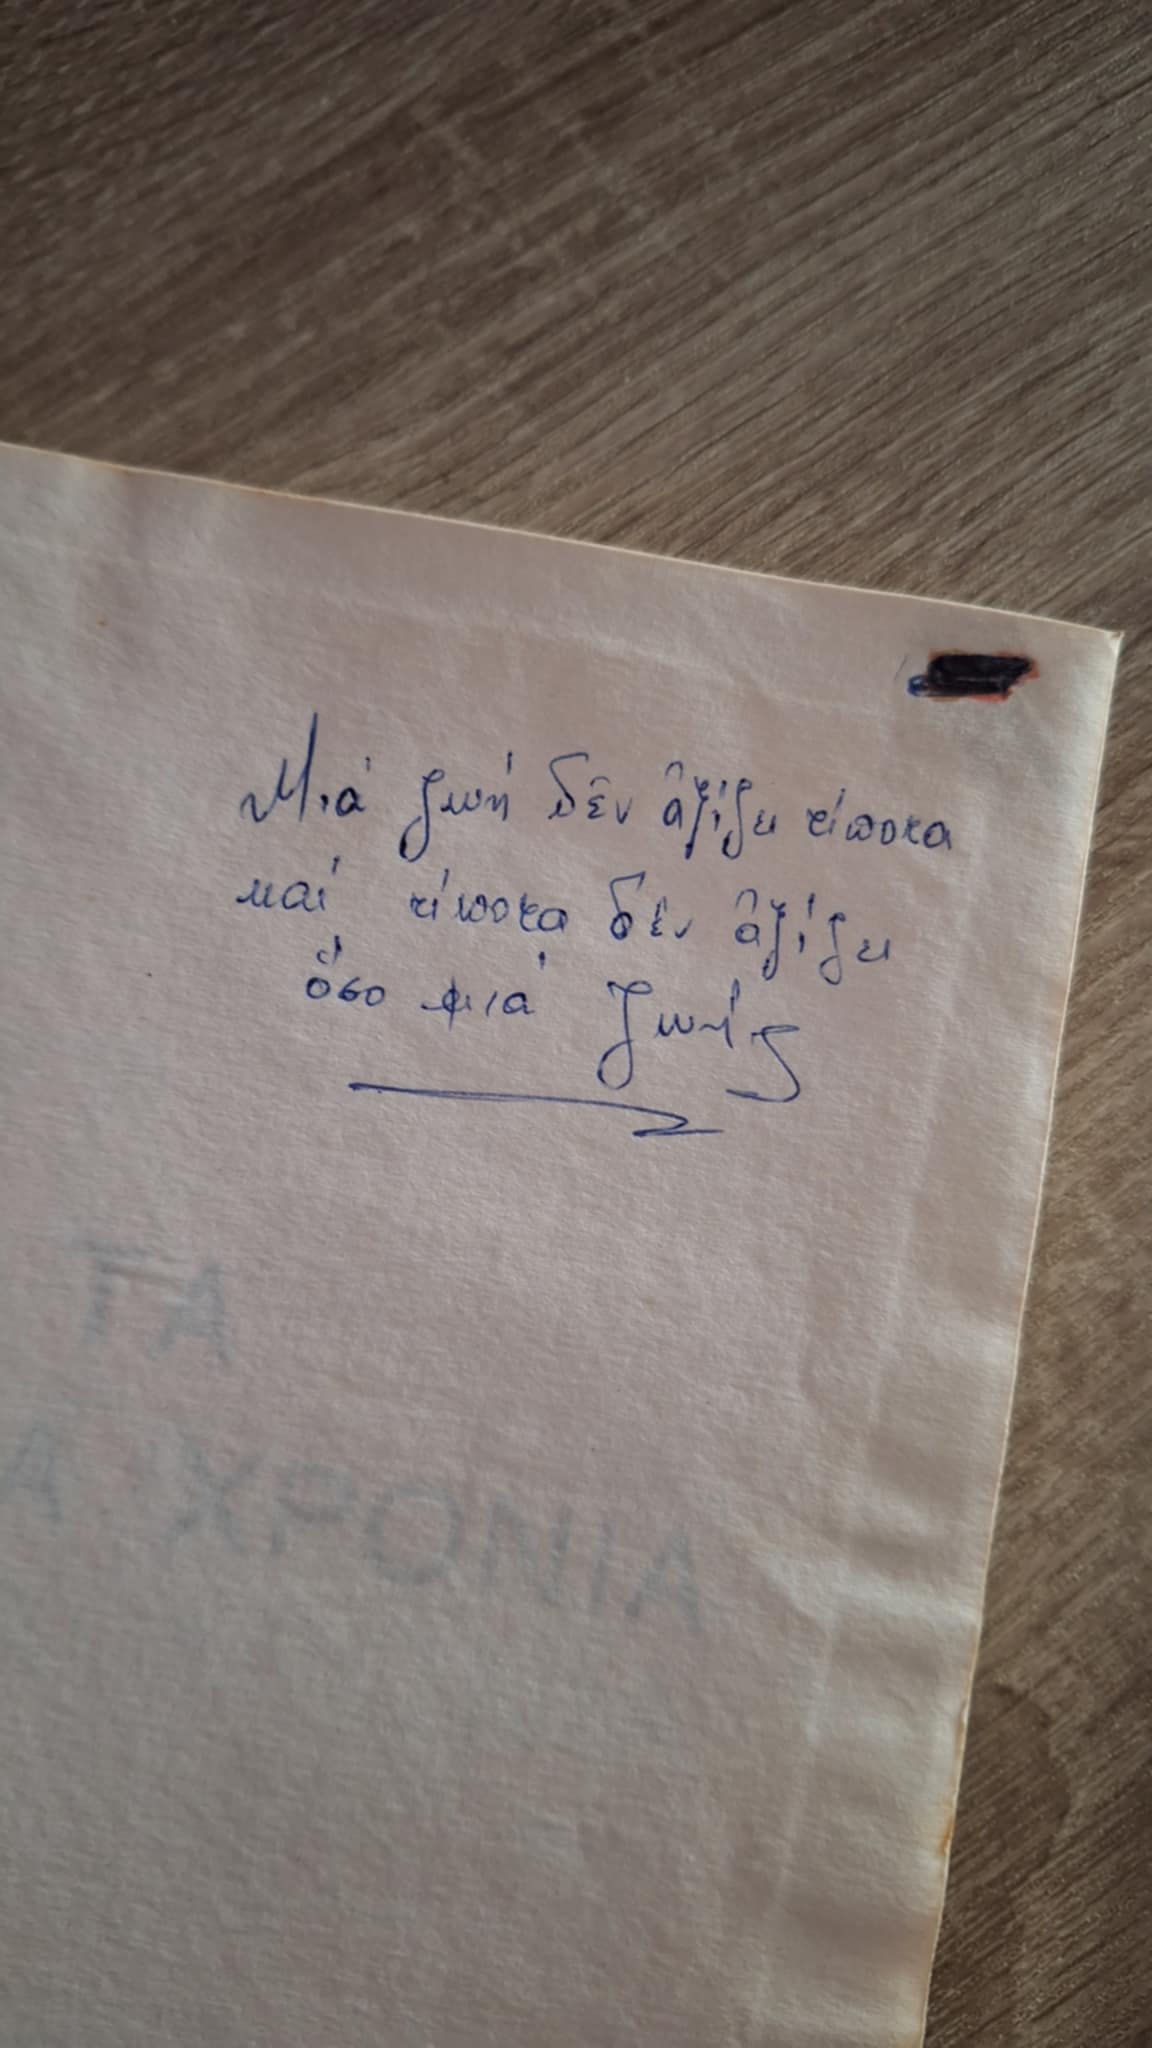 Μιά ζωή δέν ἀξίζει τίποτα
καί τίποτα δέν ἀξίζει
ὅσο μιά ζωή
ΤΑ
ΧΡΟΝΙΑ